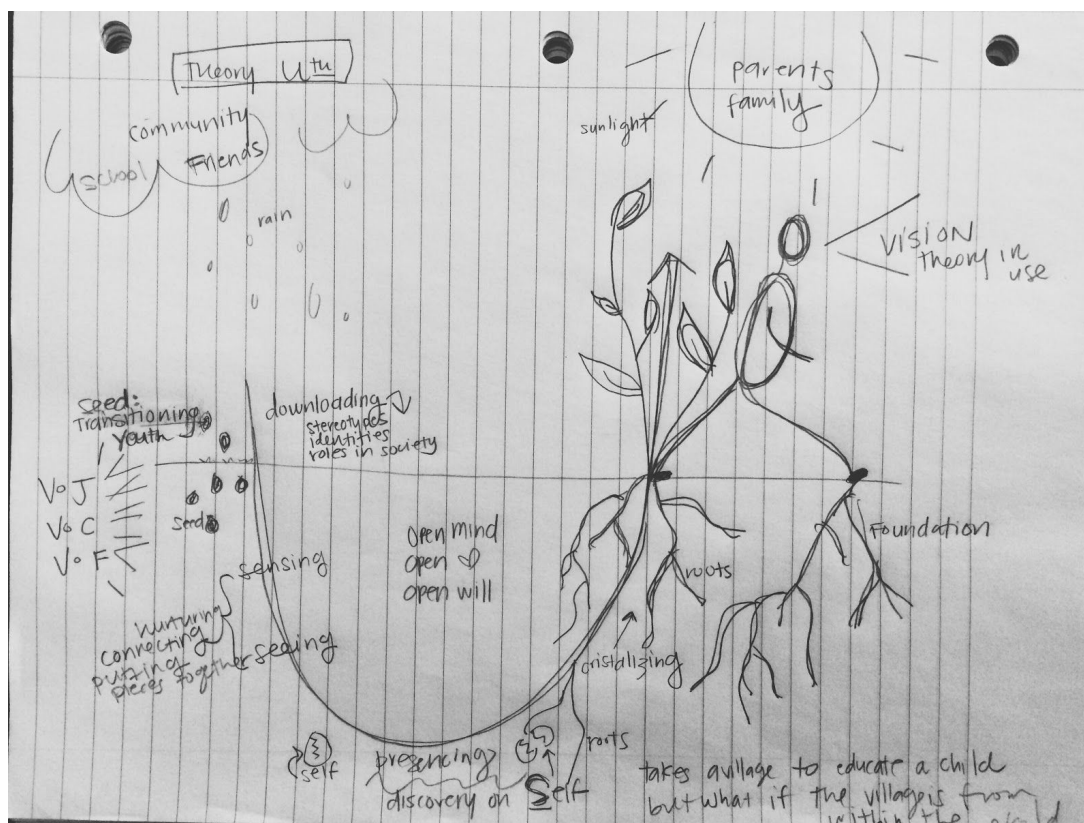 Theory Uth
community
school Friends
rain
sunlight
parents
family
VISION
theory in
use
seed:
Transitioning
Youth
downloading
stereotypes
identities
roles in society
VoJ
VoC
VoF
seed
open mind
open
open will
Foundation
roots
sensing
nurturing
connecting
putting
pieces together
seeing
cristalizing
self
presencing
roots
discovery on Self
takes a village to educate a child
but what if the village is from
within the